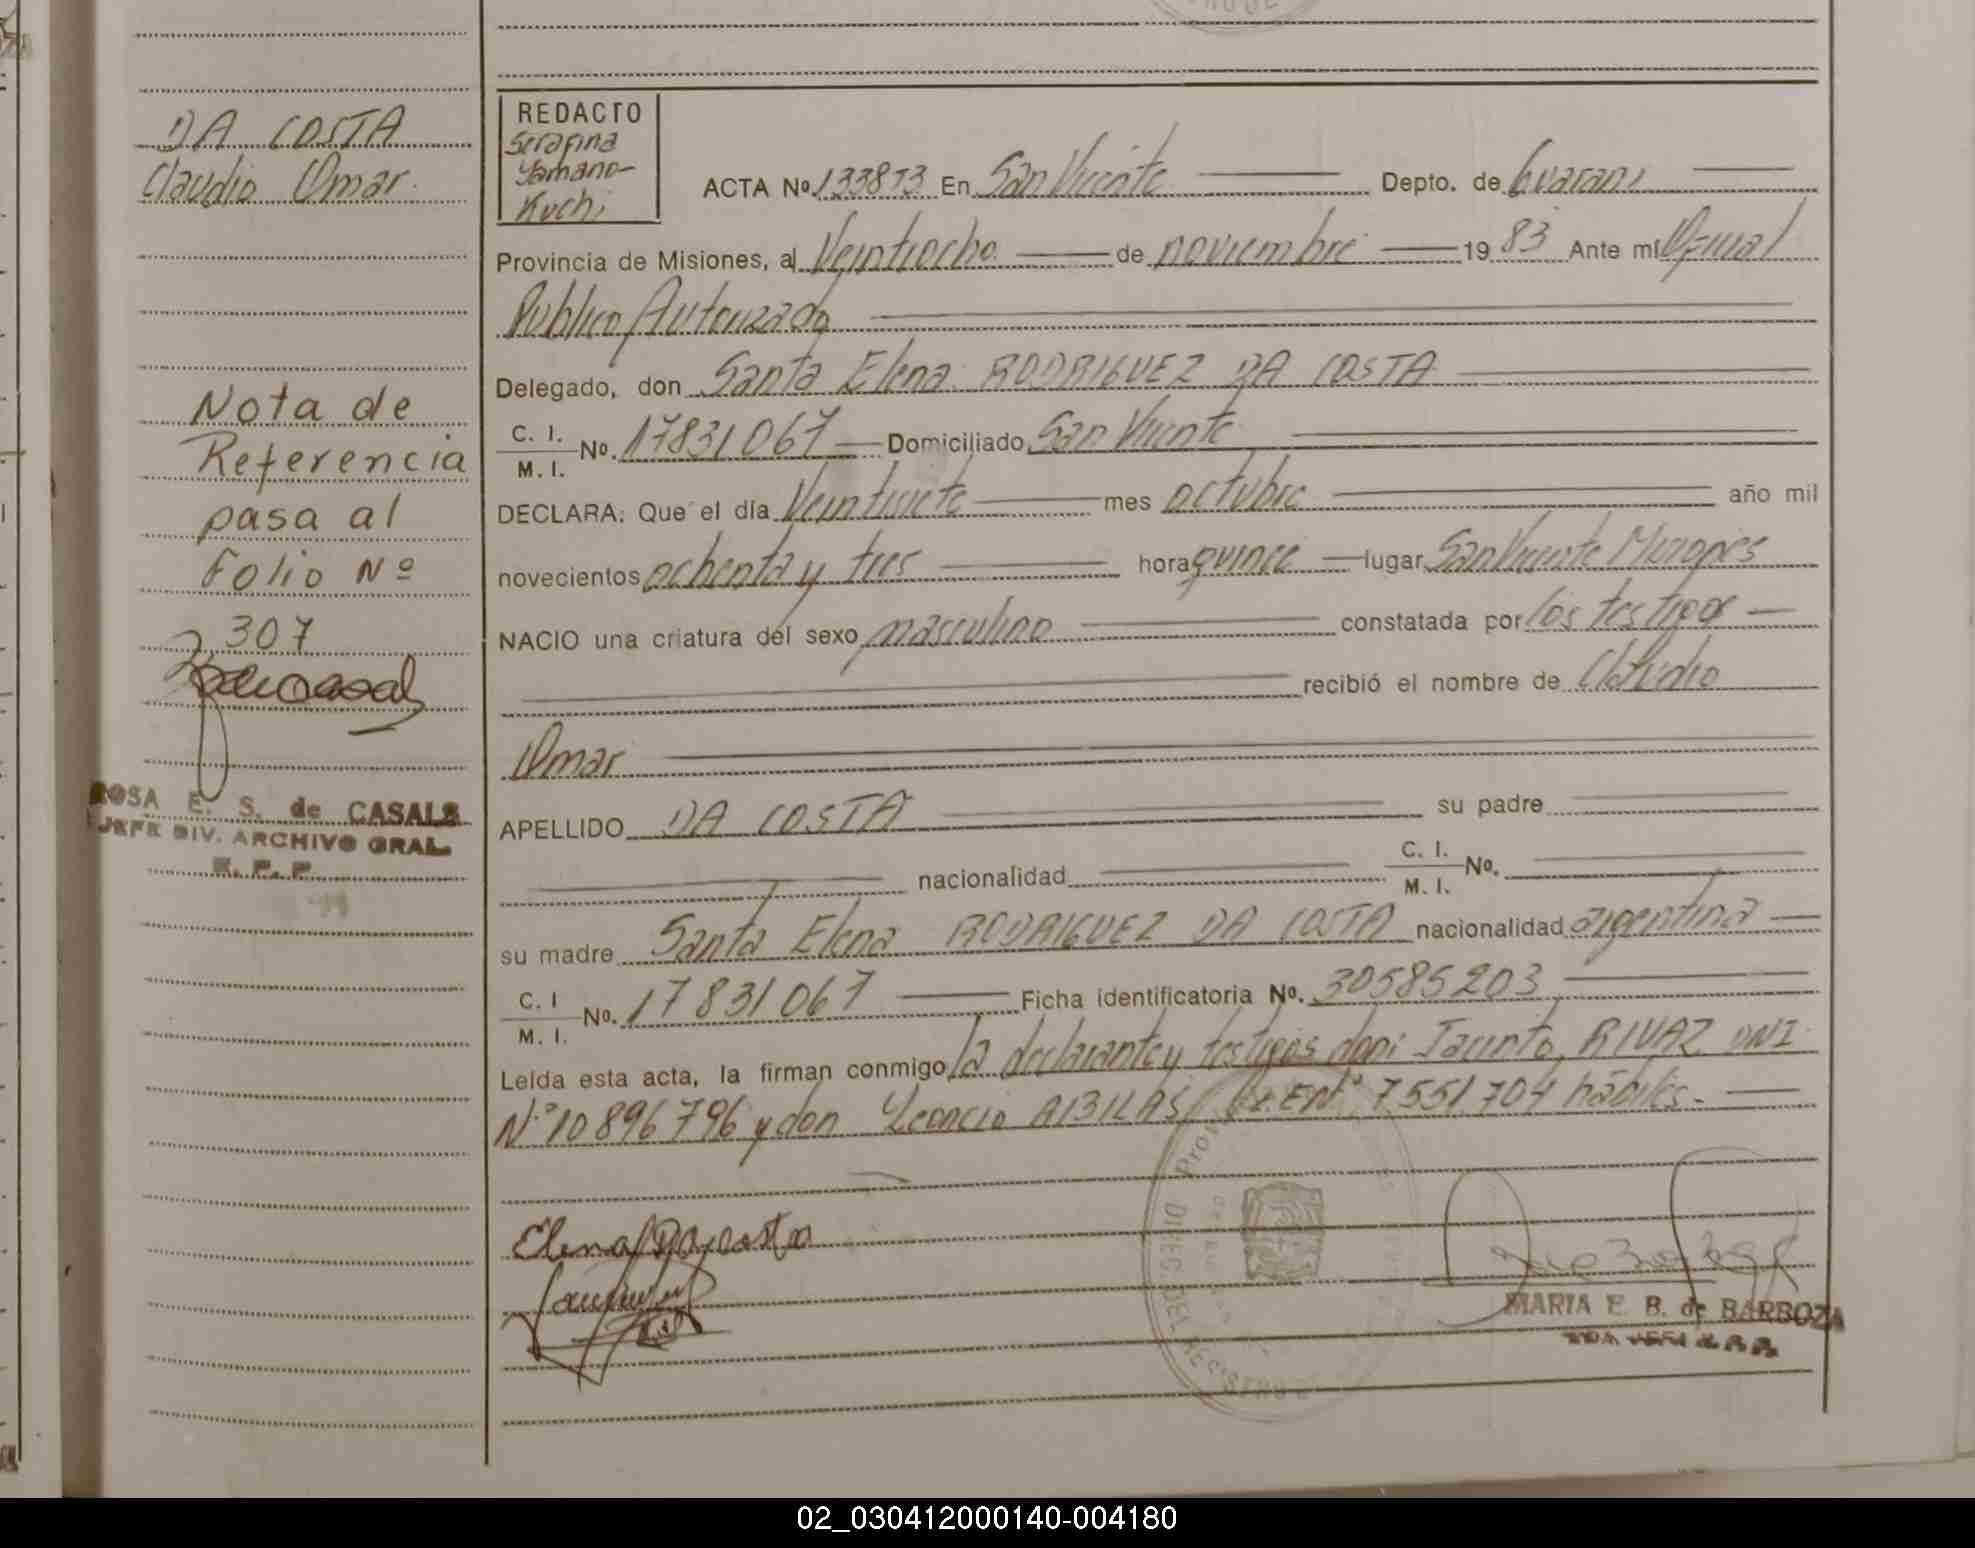 DA COSTA
Claudio Omar.
Nota de
Referencia
pasa al
Folio Nº
307
ROSA E. S. de CASALS
JEFE DIV. ARCHIVO GRAL.
R. P. P.
REDACTO
Serafina
Yamano-
Kuchi
ACTA Nº 133813 En San Vicente Depto. de Guaraní
Provincia de Misiones, al Veintiocho de noviembre 1983 Ante mí Oficial
Publico Autorizado
Delegado, don Santa Elena RODRIGUEZ DA COSTA
C. I. M. I. No. 17831067 Domiciliado San Vicente
DECLARA: Que el día Veintisiete mes octubre año mil
novecientos ochenta y tres hora quince lugar San Vicente Misiones
NACIO una criatura del sexo masculino constatada por los testigos
recibió el nombre de Claudio
Omar
APELLIDO DA COSTA su padre
nacionalidad C. I. M. I. No.
su madre Santa Elena RODRIGUEZ DA COSTA nacionalidad argentina
C. I M. I. No. 17831067 Ficha identificatoria No. 30585203
Leida esta acta, la firman conmigo la declarante y testigos don: Jacinto RIVAZ DNI
N.º 10896796 y don Leoncio 7551704 hábiles.-
Elena Da Costa
MARIA E. B. de BARBOZA
DIREC. DEL REGISTRO
02_030412000140-004180